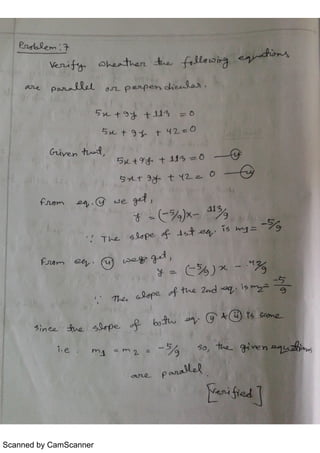 Problem: 7
Verify wheather the following equations
are parallel or perpendicular.
5x + 9y + 113 = 0
5x + 9y + 42 = 0
Given that,
5x + 9y + 113 = 0 — (i)
5x + 9y + 42 = 0 — (ii)
From eq. (i) we get,
y = (-5/9)x - 113/9
∵ The slope of 1st eq. is m1 = -5/9
From eq. (ii) we get,
y = (-5/9)x - 42/9
∵ The slope of the 2nd eq. is m2 = -5/9
Since the slope of both eq. (i) & (ii) is same
i.e. m1 = m2 = -5/9 so, the given equations
are parallel.
[Verified]
Scanned by CamScanner